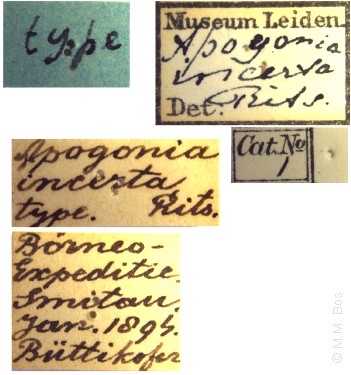 type
Museum Leiden.
Apogonia
incerta
Det. Rits.
Cat. No
1
Apogonia
incerta,
type. Rits.
Borneo-
Expeditie.
Smitau,
Jan. 1894.
Büttikofer
© M.M. Bos